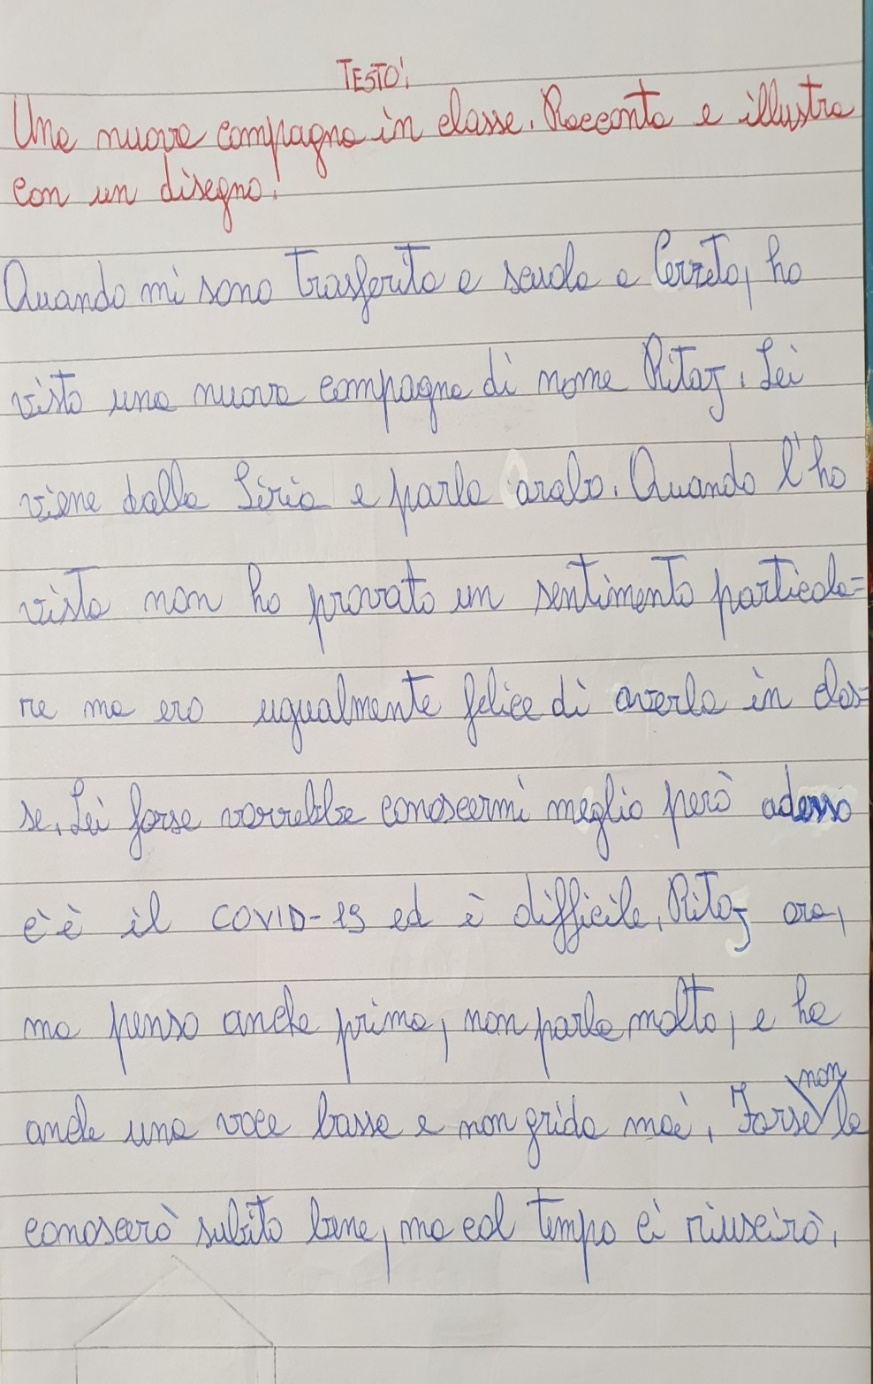 TESTO:
Una nuova compagna in classe. Racconta e illustra
con un disegno.
Quando mi sono trasferito a scuola a Cerreto, ho
visto una nuova compagna di nome Ritaj. Lei
viene dalla Siria e parla arabo. Quando l'ho
vista non ho provato un sentimento particola=
re ma ero ugualmente felice di averla in clas=
se. Lei forse vorrebbe conoscermi meglio però adesso
c'è il COVID-19 ed è difficile. Ritaj ora,
ma penso anche prima, non parla molto, e ha
anche una voce bassa e non grida mai. Forse non la
conoscerò subito bene, ma col tempo ci riuscirò.